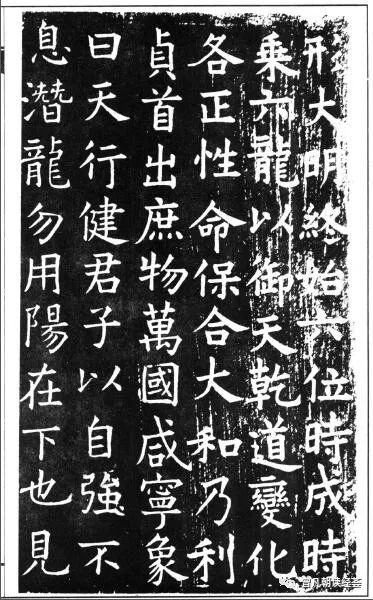 形大明終始六位時成時
乘六龍以御天乾道變化
各正性命保合大和乃利
貞首出庶物萬國咸寧象
曰天行健君子以自強不
息潛龍勿用陽在下也見